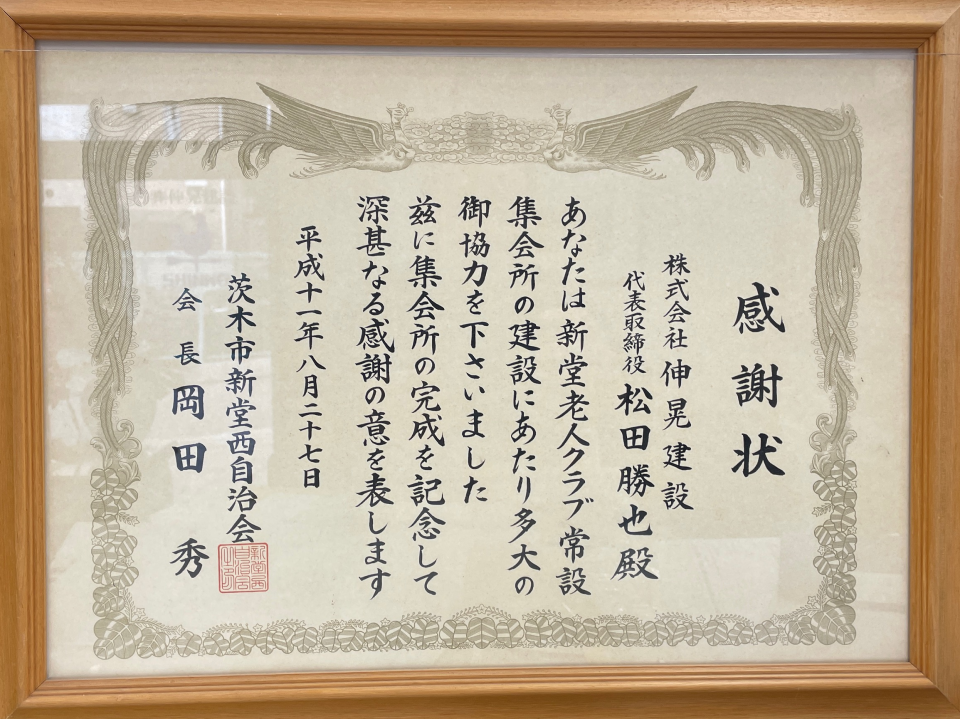 感謝状
株式会社 伸晃建設
代表取締役 松田勝也殿
あなたは新堂老人クラブ常設
集会所の建設にあたり多大の
御協力を下さいました
茲に集会所の完成を記念して
深甚なる感謝の意を表します
平成十一年八月二十七日
茨木市新堂西自治会
会長 岡田 秀